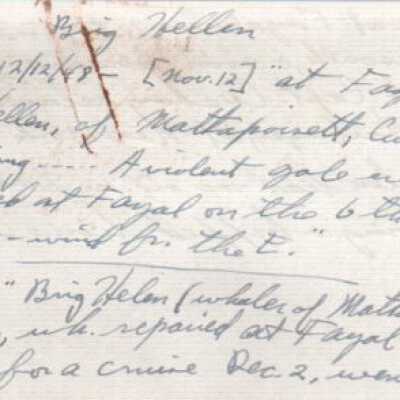 Brig Hellen
12/12/48 - [Nov. 12] "at Fay
ellen, of Mattapoisett, Cu
ng ---- A violent gale
d at Fayal on the 6 th
- wind fr. the E."
" Brig Helen (whaler of Matt
, wh. repaired at Fayal
for a cruise Dec. 2, wen